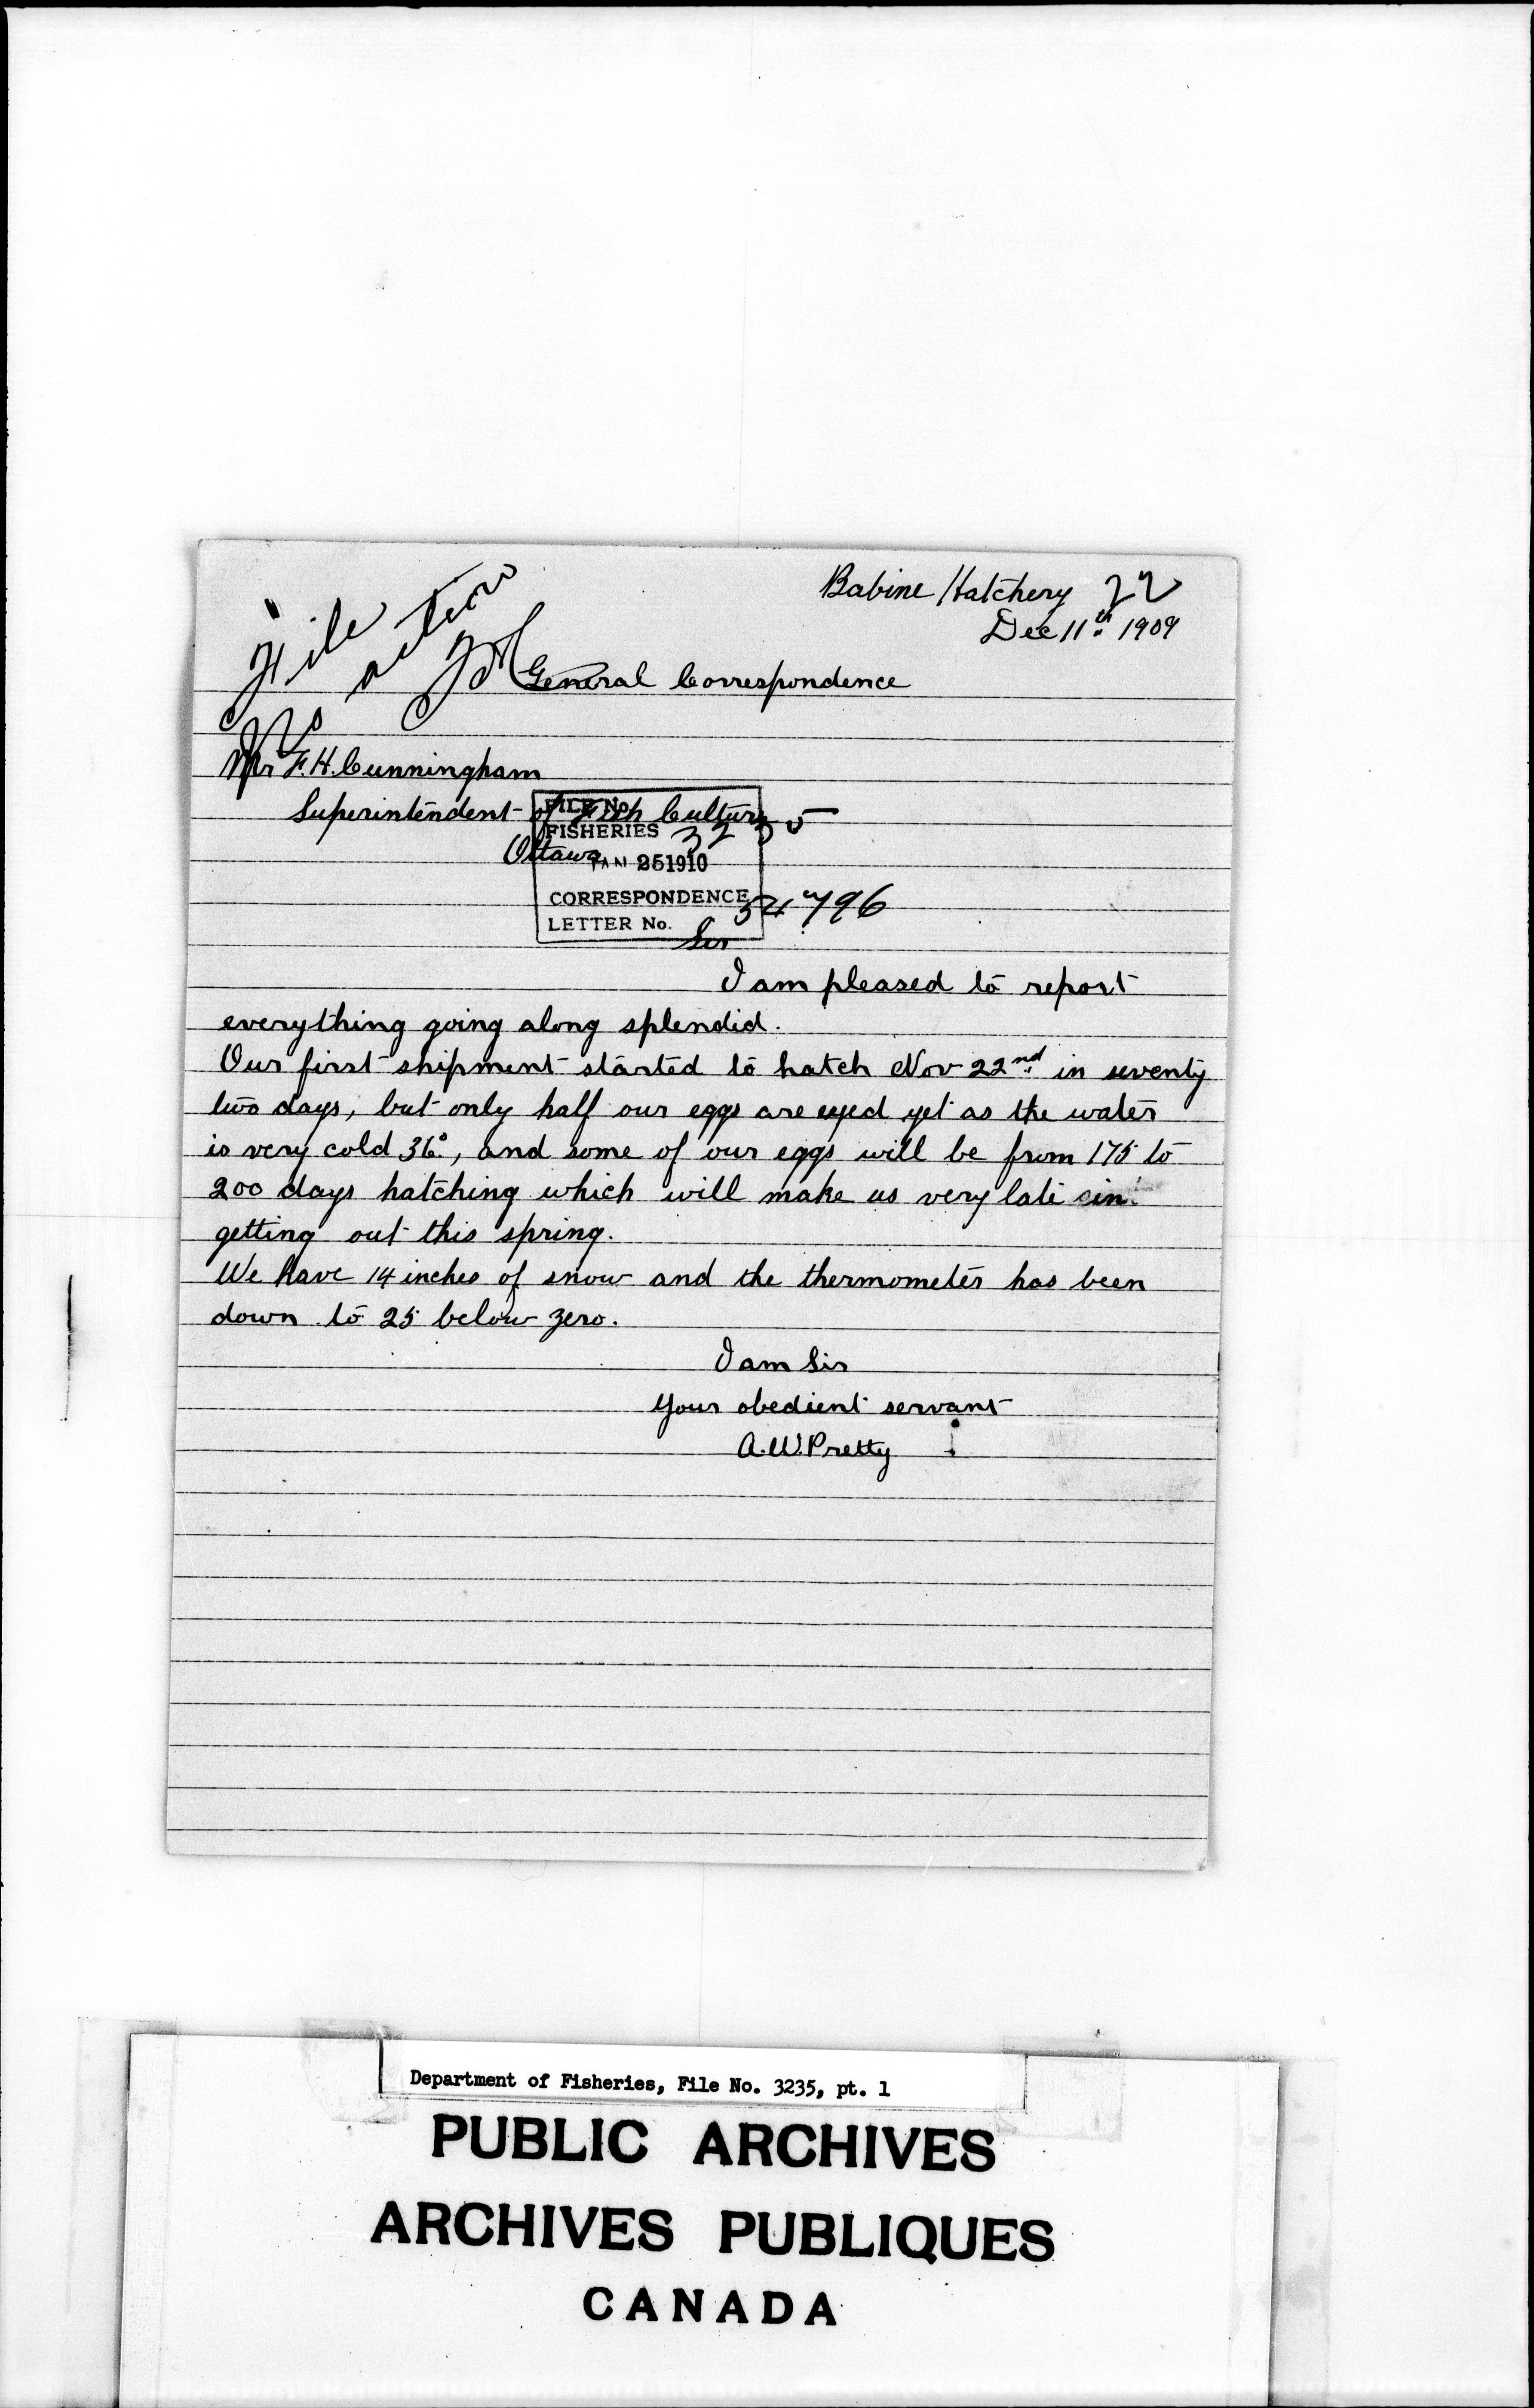 Babine Hatchery 22
Dec 11th 1909
File
No action
General Correspondence
Mr F.H. Cunningham
Superintendent of Fish Culture
Ottawa
FILE No.
FISHERIES 3235
JAN 25 1910
CORRESPONDENCE
LETTER No. 54796
Sir
I am pleased to report
everything going along splendid.
Our first shipment started to hatch Nov 22nd in seventy
two days, but only half our eggs are eyed yet as the water
is very cold 36°, and some of our eggs will be from 175 to
200 days hatching which will make us very late in
getting out this spring.
We have 14 inches of snow and the thermometer has been
down to 25 below zero.
I am Sir
Your obedient servant
A.W. Pretty
Department of Fisheries, File No. 3235, pt. 1
PUBLIC ARCHIVES
ARCHIVES PUBLIQUES
CANADA